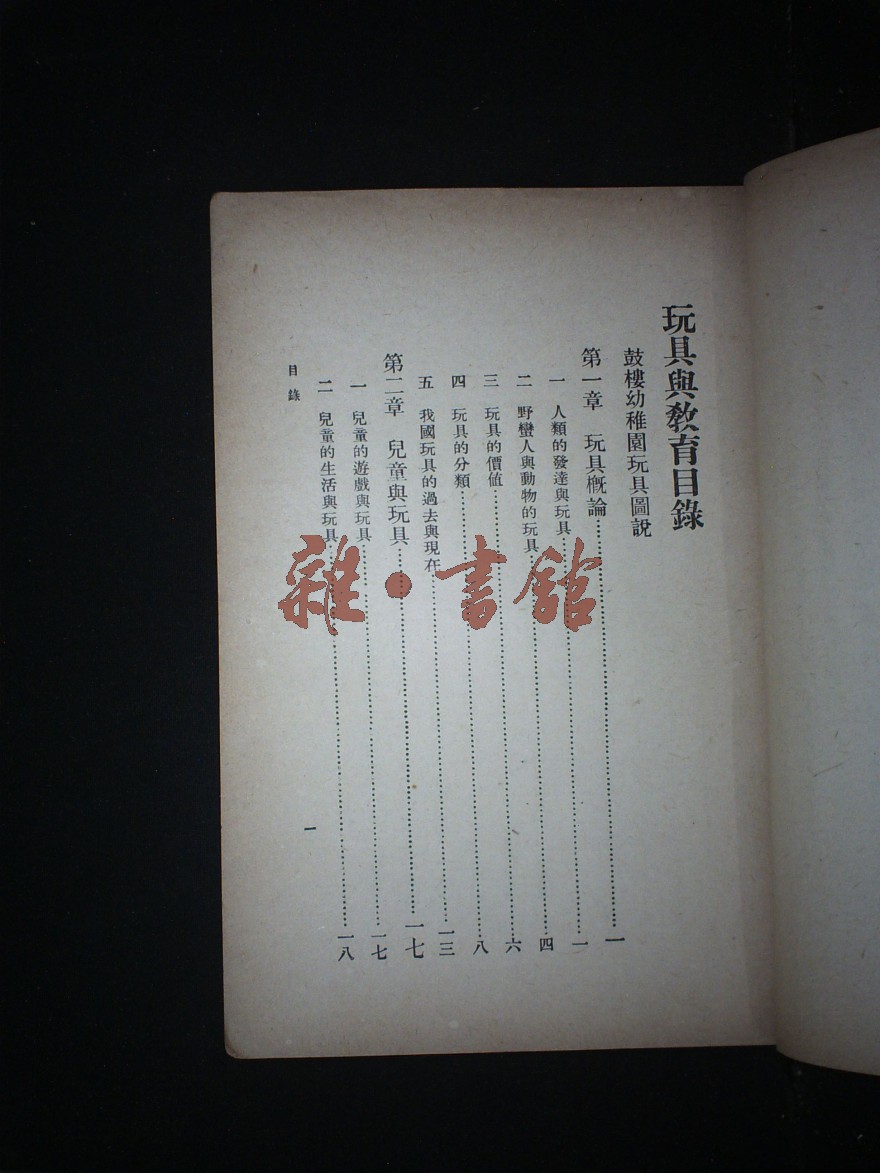 玩具與教育目錄
鼓樓幼稚園玩具圖說
第一章 玩具概論……一
一 人類的發達與玩具……一
二 野蠻人與動物的玩具……四
三 玩具的價值……六
四 玩具的分類……八
五 我國玩具的過去與現在……一三
第二章 兒童與玩具……一七
一 兒童的遊戲與玩具……一七
二 兒童的生活與玩具……一八
目錄
一
雜·書館